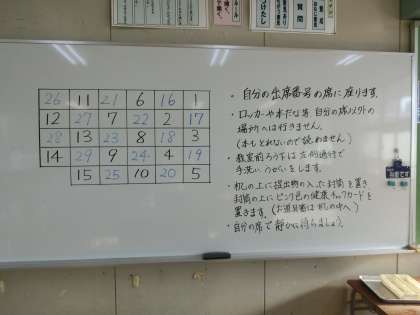 質問
26 11 21 6 16 1
12 27 7 22 2 17
28 13 23 8 18 3
14 29 9 24 4 19
15 25 10 20 5
・自分の出席番号の席に座ります。
・ロッカーや本だな等、自分の席以外の
場所へは行きません。
(本もとれないので読めません)
・教室前ろう下は左側通行で
手洗い、うがいをします。
・机の上に提出物の入った封筒を置き
封筒の上にピンク色の健康チェックカードを
置きます。(お道具箱は机の中へ)
・自分の席で静かに待ちましょう。